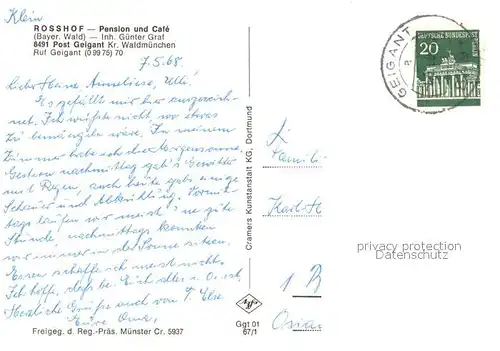 Klein
ROSSHOF — Pension und Café
(Bayer. Wald) — Inh. Günter Graf
8491 Post Geigant Kr. Waldmünchen
Ruf Geigant (0 99 75) 70
7.5.68.
Liebe Anneliese, Ulli!
Es gefällt mir hier ausgezeich-
net. Ich wüßte nicht wo etwas
zu bemängeln wäre. In meinem
Zimmer habe ich die Morgensonne.
Gestern nachmittag gab's Gewitter
mit Regen, auch heute gab's einige
Schauer und Abkühlung. Vormit-
tags laufen wir meist 'ne gute
Stunde, nachmittags konnten
wir immer in der Sonne sitzen.
Essen schaffe ich meist nicht.
Ich hoffe, daß bei Euch alles i. O. ist.
Herzliche Grüße auch von T. Else
Eure Oma.
Freigeg. d. Reg.-Präs. Münster Cr. 5937
Cramers Kunstanstalt KG, Dortmund
Ggt 01
67/1
GEIGANT
DEUTSCHE BUNDESPOST
20
Famili
Karl-H
1 B
privacy protection
Datenschutz